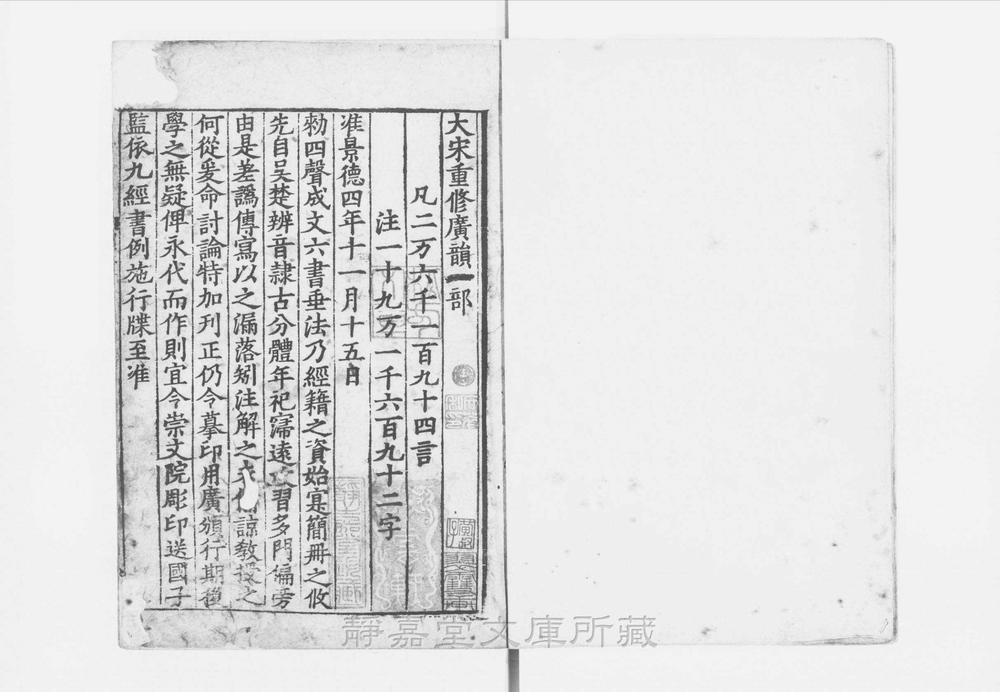 大宋重修廣韻一部
凡二万六千一百九十四言
注一十九万一千六百九十二字
准景德四年十一月十五日
勑四聲成文六書垂法乃經籍之資始寔簡冊之攸
先自吴楚辨音隷古分體年祀寖遠攻習多門偏旁
由是差譌傳寫以之漏落矧注解之未備諒教授之
何從爰命討論特加刋正仍令摹印用廣頒行期後
學之無疑俾永代而作則宜令崇文院彫印送國子
監依九經書例施行牒至准
靜嘉堂文庫所藏